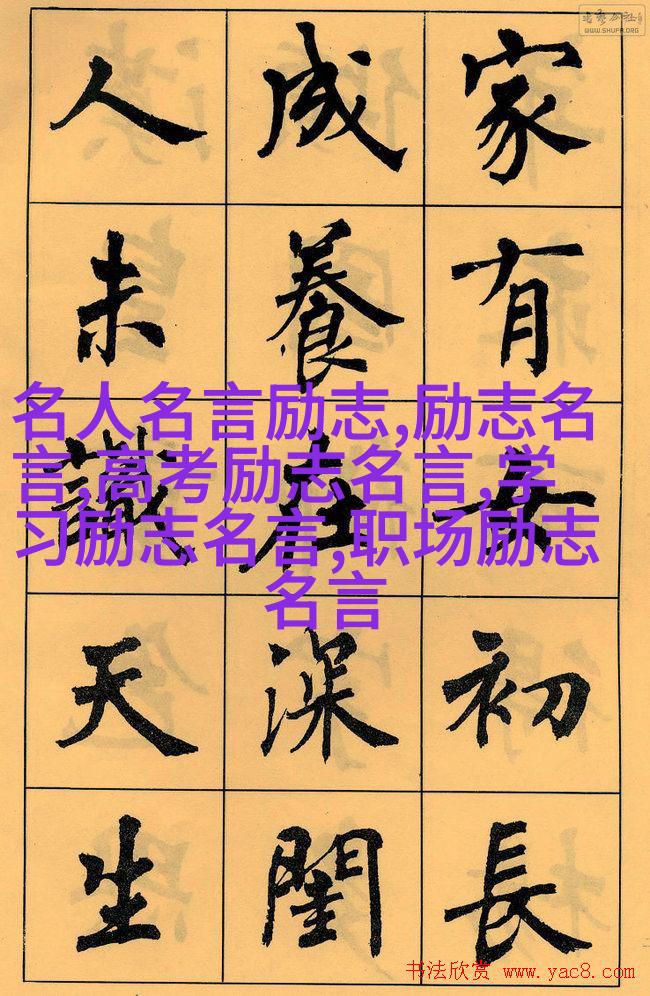 WWW.SHUFA.ORG
家有女初長
成養在深閨
人未識天生
名人名言励志,励志名
言,高考励志名言,学
习励志名言,职场励志
名言
书法欣赏 www.yac8.com